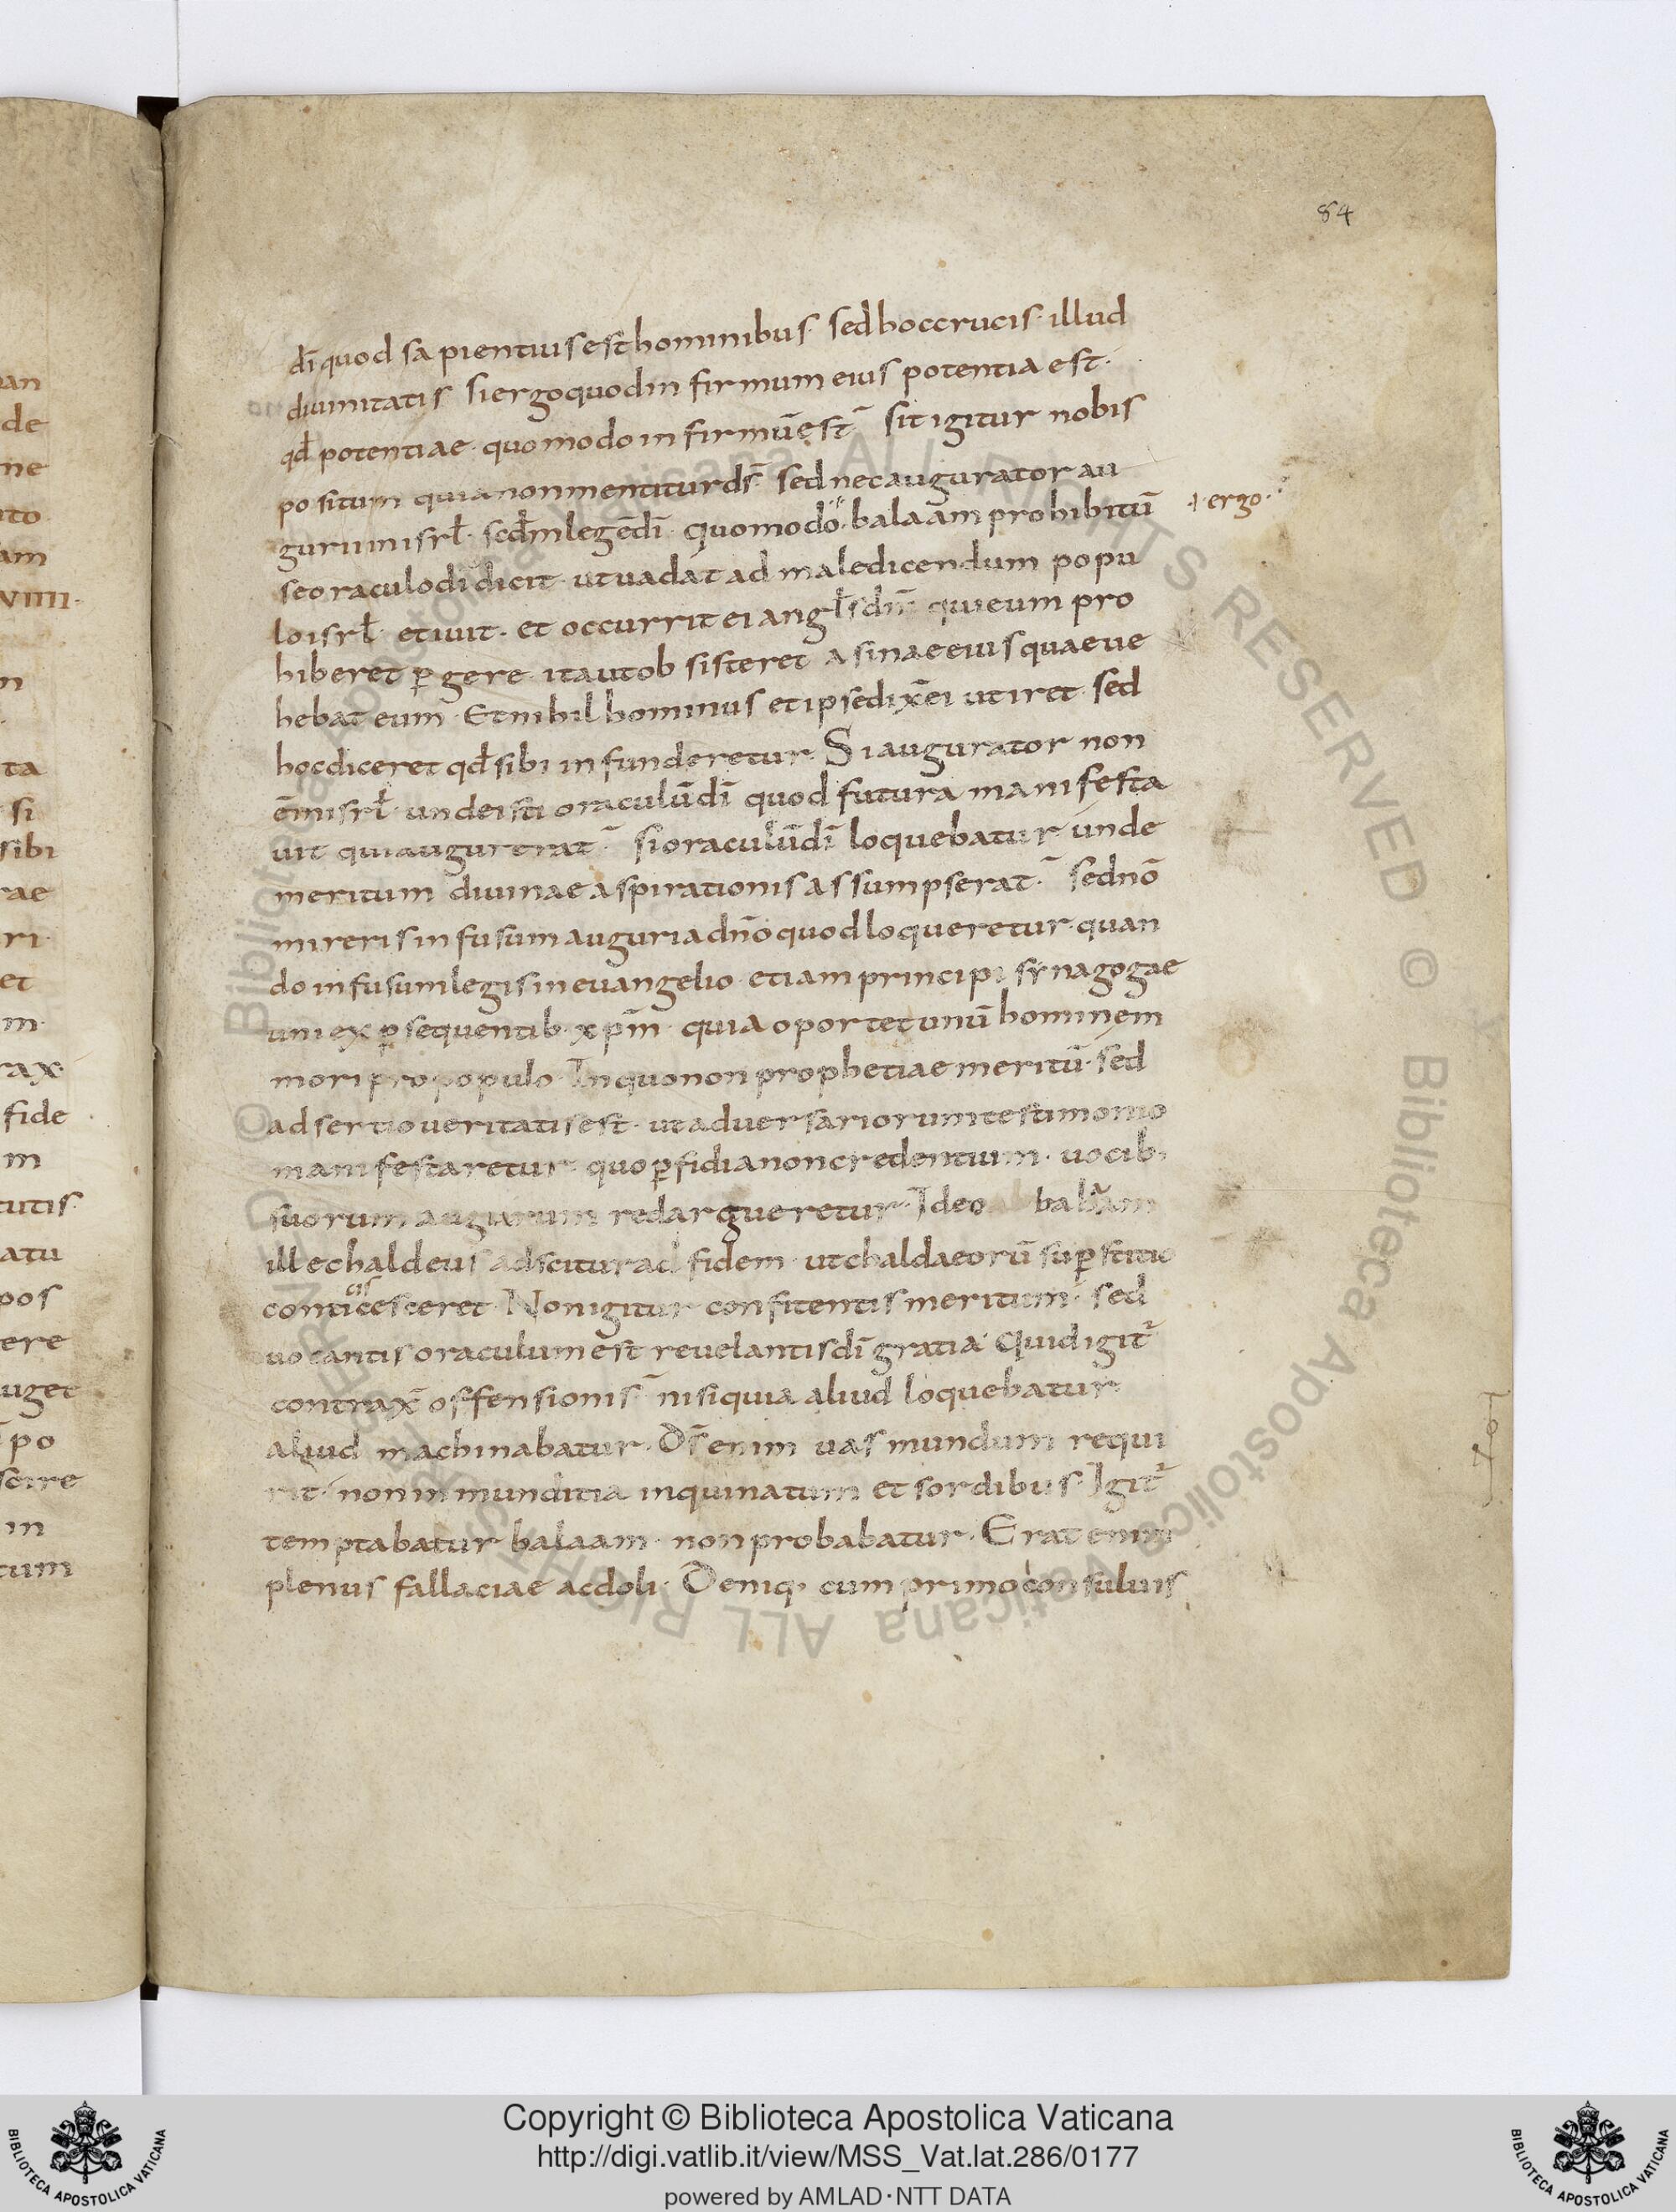 84
dī quod sapientius est hominibus · sed hoc crucis · illud
diuinitatis si ergo quod infirmum eius potentia est ·
qđ potentiae · quomodo infirmū est · sit igitur nobis
positum quia non mentitur dš · sed nec augurator au
gurium isrł · scđm legē dī · Quomodo balaam prohibitū
+ ergo ·
se oraculo dī dicit · ut uadat ad maledicendum popu
lo isrł · et iuit · et occurrit ei angłs dnī qui eum pro
hiberet ꝑgere · ita ut obsisteret asinae eius quae ue
hebat eum · Et nihilhominus et ipse dix̄ ei ut iret · sed
hoc diceret qđ sibi infunderetur · Si augurator non
ē in isrł · unde isti oraculū dī quod futura manifesta
uit qui augur erat · si oraculū dī loquebatur unde
meritum diuinae aspirationis assumpserat · sed nō
mireris infusum auguri a dnō quod loqueretur · quan
do infusum legis in euangelio · etiam principi synagogae
uni ex ꝑsequentib · xpm̄ · quia oportet unū hominem
mori pro populo · In quo non prophetiae meritū · sed
adsertio ueritatis est · ut aduersariorum testimonio
manifestaretur · quo ꝑfidia non credentium · uocib ·
suorum augurum redargueretur · Ideo balaam
ille chaldeus adscitur ad fidem · ut chaldaeorū suꝑstitio
conticesceret · Non igitur confitentis meritum · sed
uocantis oraculum est reuelantis dī gratia · Quid igit̄
contrax̄ offensionis nisi quia aliud loquebatur
aliud machinabatur · Dš enim uas mundum requi
rit · non inmunditia inquinatum et sordibus · Igit̄
temptabatur balaam · non probabatur · Erat enim
plenus fallaciae ac doli · Deniq · cum primo consuluis
an
de
ne
ito
am
VIIII ·
n
ta
si
sibi
rae
ri ·
et
m ·
rax ·
fide
m
tutis ·
atu
pos
ere
uget
po
scire
in
tum
© Biblioteca Apostolica Vaticana ALL RIGHTS RESERVED
Copyright © Biblioteca Apostolica Vaticana
http://digi.vatlib.it/view/MSS_Vat.lat.286/0177
powered by AMLAD · NTT DATA
BIBLIOTECA APOSTOLICA VATICANA
BIBLIOTECA APOSTOLICA VATICANA